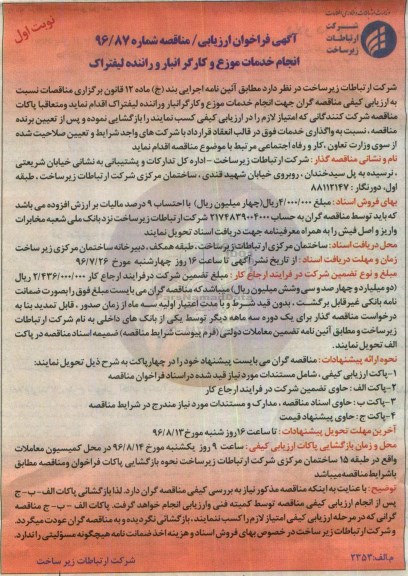 وزارت ارتباطات و فناوری اطلاعات
شرکت
ارتباطات
زیرساخت
نوبت اول
آگهی فراخوان ارزیابی/ مناقصه شماره ۹۶/۸۷
انجام خدمات موزع و کارگر انبار و راننده لیفتراک
شرکت ارتباطات زیرساخت در نظر دارد مطابق آئین نامه اجرایی بند (ج) ماده ۱۲ قانون برگزاری مناقصات نسبت
به ارزیابی کیفی مناقصه گران جهت انجام خدمات موزع وکارگرانبار وراننده لیفتراک اقدام نماید ومتعاقبا پاکات
مناقصه شرکت کنندگانی که امتیاز لازم را در ارزیابی کیفی کسب نمایند را بازگشایی نموده و پس از تعیین برنده
مناقصه ، نسبت به واگذاری خدمات فوق در قالب انعقاد قرارداد با شرکت های واجد شرایط و تعیین صلاحیت شده
از سوی وزارت تعاون ، کار و رفاه اجتماعی مرتبط با موضوع مناقصه اقدام نماید
نام و نشانی مناقصه گذار : شرکت ارتباطات زیرساخت – اداره کل تدارکات و پشتیبانی به نشانی خیابان شریعتی
، نرسیده به پل سیدخندان ، روبروی خیابان شهید قندی ، ساختمان مرکزی شرکت ارتباطات زیرساخت ، طبقه
اول، دورنگار : ۸۸۱۱۲۱۴۷
بهای فروش اسناد : مبلغ ۴/۰۰۰/۰۰۰ریال(چهار میلیون ریال) با احتساب ۹ درصد مالیات بر ارزش افزوده می باشد
که باید توسط مناقصه گران به حساب ۲۱۷۴۸۳۹۰۰۴۰۰۰ شرکت ارتباطات زیرساخت نزد بانک ملی شعبه مخابرات
واریز و اصل فیش را به همراه معرفینامه جهت دریافت اسناد تحویل نمایند
محل دریافت اسناد: ساختمان مرکزی ارتباطات زیرساخت، طبقه همکف ، دبیرخانه ساختمان مرکزی زیر ساخت
زمان و مهلت دریافت اسناد : از تاریخ نشر آگهی تا ساعت ۱۶ روز چهارشنبه مورخ ۹۶/۷/۲۶
مبلغ و نوع تضمین شرکت در فرایند ارجاع کار : مبلغ تضمین شرکت در فرایند ارجاع کار ۲/۴۳۶/۰۰۰/۰۰۰ ریال
(دو میلیارد و چهار صد و سی وشش میلیون ریال) میباشد که مناقصه گران می بایست مبلغ فوق را بصورت ضمانت
نامه بانکی غیرقابل برگشت ، بدون قید شرط و با مدت اعتبار اولیه سه ماه از زمان صدور ، قابل تمدید بنا به
درخواست مناقصه گذار برای یک دوره سه ماهه دیگر توسط یکی از بانک های داخلی به نام شرکت ارتباطات
زیرساخت و مطابق آئین نامه تضمین معاملات دولتی (فرم پیوست شرایط مناقصه) ضمیمه اسناد مناقصه در پاکت
الف تحویل نمایند.
نحوه ارائه پیشنهادات : مناقصه گران می بایست پیشنهاد خود را در چهار پاکت به شرح ذیل تحویل نمایند:
۱-پاکت ارزیابی کیفی ، شامل مستندات مورد نیاز قید شده در اسناد فراخوان مناقصه
۲-پاکت الف : حاوی تضمین شرکت در فرایند ارجاع کار
۳-پاکت ب : حاوی اسناد مناقصه ، مدارک و مستندات مورد نیاز مندرج در شرایط مناقصه
۴-پاکت ج: حاوی پیشنهاد قیمت
آخرین مهلت تحویل پیشنهادات : تا ساعت ۱۶ روز شنبه مورخ ۹۶/۸/۱۳
محل و زمان بازگشایی پاکات ارزیابی کیفی : ساعت ۹ روز یکشنبه مورخ ۹۶/۸/۱۴ در محل کمیسیون معاملات
واقع در طبقه ۱۵ ساختمان مرکزی شرکت ارتباطات زیرساخت نحوه بازگشایی پاکات فراخوان ومناقصه مطابق
باشرایط مناقصه میباشد
توضیح : با عنایت به اینکه مناقصه مذکور نیاز به بررسی کیفی مناقصه گران دارد. لذا بازگشائی پاکات الف – ب – ج
پس از انجام ارزیابی کیفی مناقصه توسط کمیته فنی وارزیابی انجام خواهد گرفت. پاکات الف – ب – ج مناقصه
گرانی که در مرحله ارزیابی کیفی امتیاز لازم را کسب ننمایند ، بازگشائی نگردیده و به مناقصه گران عودت میگردد
و شرکت ارتباطات زیرساخت در خصوص بهای فروش اسناد و هزینه اخذ ضمانت نامه هیچگونه مسؤلیتی را ندارد.
م.الف: ۲۳۵۳
شرکت ارتباطات زیر ساخت